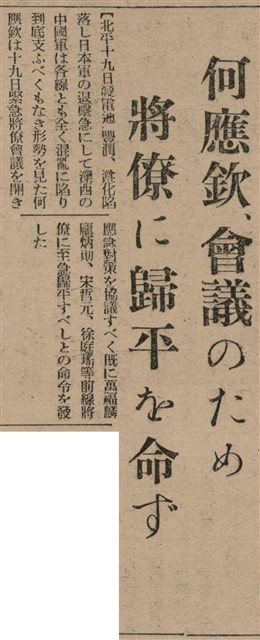 何應欽、會議のため
將僚に歸平を命ず
【北平十九日發電通】豐潤、遵化陷
落し日本軍の退擊急にして灤西の
中國軍は各線とも全く混亂に陷り
到底支ふべくもなき形勢を見た何
應欽は十九日緊急將僚會議を開き
應急對策を協議すべく既に萬福麟
龐炳勛、宋哲元、徐庭瑤等前線將
僚に至急歸平すべしとの命令を發
した